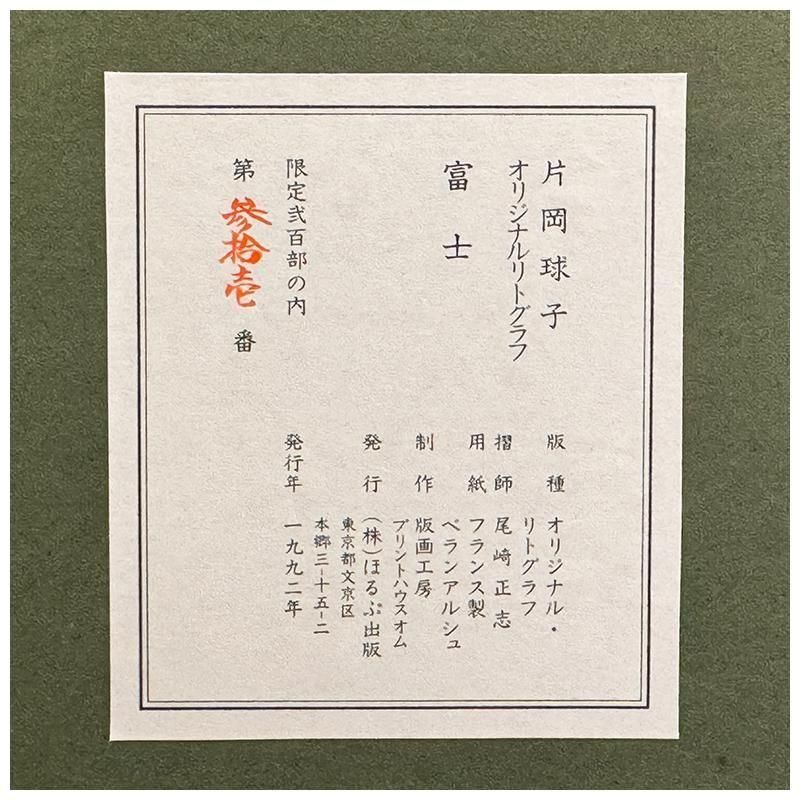 片岡球子
オリジナルリトグラフ
富士
限定弐百部の内
第 参拾壱 番
版種 オリジナル・
リトグラフ
摺師 尾崎正志
用紙 フランス製
ベランアルシュ
制作 版画工房
プリントハウスオム
発行 (株)ほるぷ出版
東京都文京区
本郷三-十五-二
発行年 一九九二年